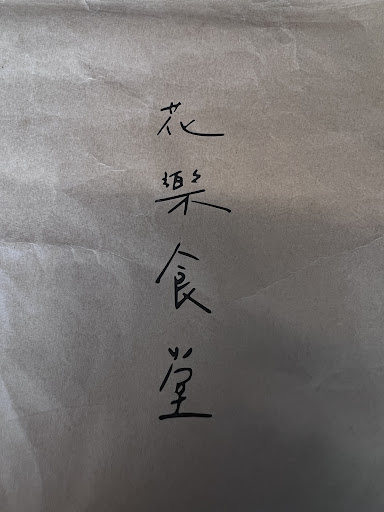 花樂食堂